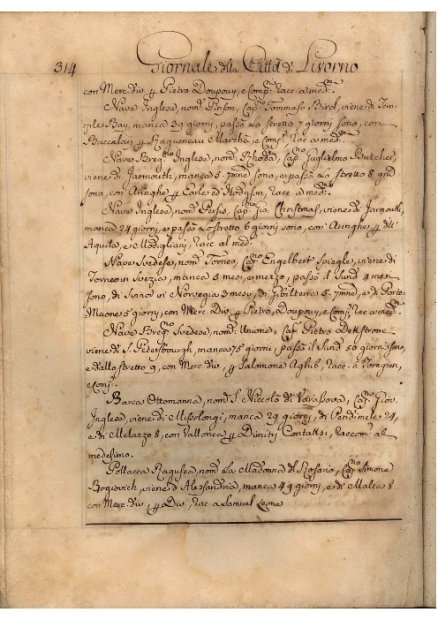 314 Giornale della Città di Livorno
con Merc. div. p. Pietro Doupouy, e Comp. Racc. a med.
Nave Inglese, nom. Pinson, Cap. Tommaso Birch, viene di Tem-
ple Bay, manca 39 giorni, passò Lo stretto 7 giorni sono, con
Baccalay p. Ragueneau e Comp. Racc. a med.
Nave Brig. Inglese, nom. Rhoda, Cap. Guglielmo Butcher,
viene di Jarmouth, manca 5 7mne sono, e passò Lo stretto 8 gni
sono, con Aringhe p. Earle ed Hodgson, Racc. a med.
Nave Inglese, nom. Persis, Cap. Gio. Christmas, viene di Jarmouth,
manca 24 giorni, e passò Lo stretto 6 giorni sono, con Aringhe p. dell'
Aquila, e Modigliani, Racc. al med.
Nave Svedese, nom. Torneo, Cap. Engelbert Spiegle, viene di
Torneo in Svezia, manca 5 mesi, e mezzo, passò il Sund 4 mesi
sono, di in Norvegia 3 mesi, di Gibilterra 5 7mne, e di Porto
Maone 5 giorni, con Merc. Div. p. Pietro, Doupouy, e Comp. Racc. a med.
Nave Brig. Svedese, nom. Unionen, Cap. Pietro
viene di S. Petersbourgh, manca 75 giorni, passò il Sund 50 giorni sono,
e dallo stretto 9, con Merc. div. p. Salomone Aghib, Racc. a
e Comp.
Barca Ottomanna, nom. S. Niccolò di Cap. Gior.
Inglese, viene di Missolongi, manca 29 giorni, di 24,
e di Melazzo 8, con Vallonea p. Dimitry Raccom. al
medesimo.
Pollacca Ragusea, nom. La Madonna del Rosario, Cap. Simone
Bogovich, viene d'Alessandria, manca 49 giorni, e di Malta 8
con Merc. div., p. Div., Racc. a Samuel Leone